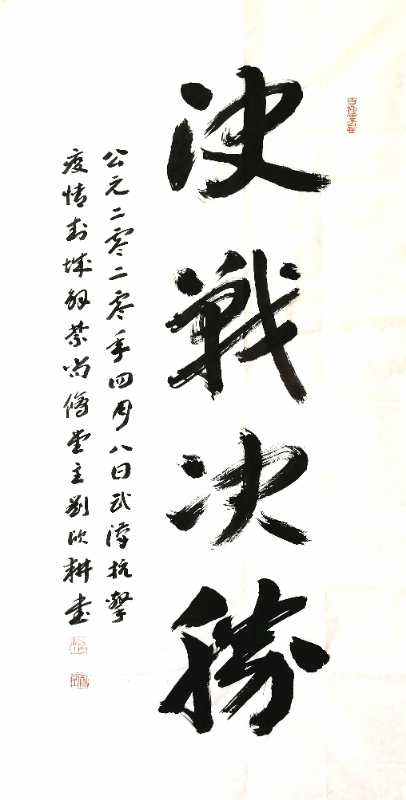 決戰决勝
公元二零二零年四月八日武漢抗擊
疫情封城解禁尚脩堂主劉欣耕書